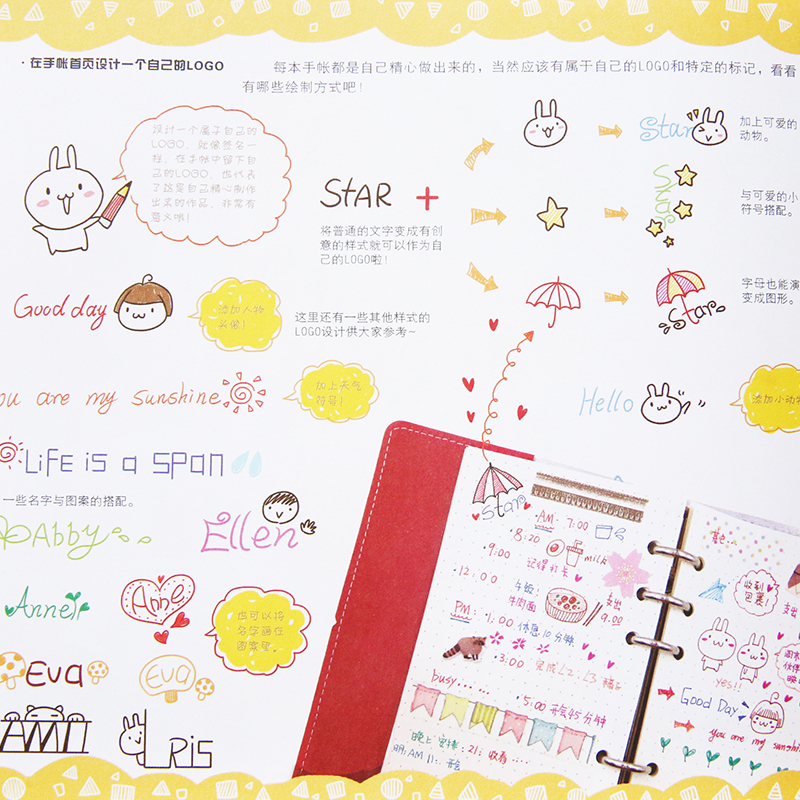 ·在手帐首页设计一个自己的LOGO
每本手帐都是自己精心做出来的，当然应该有属于自己的LOGO和特定的标记，看看
有哪些绘制方式吧！
设计一个属于自己的
LOGO，就像签名一
样，在手帐中留下自
己的LOGO，也代表
了这是自己精心制作
出来的作品，非常有
意义哦！
StAR +
将普通的文字变成有创
意的样式就可以作为自
己的LOGO啦！
Star
加上可爱的
动物。
Star
与可爱的小
符号搭配。
Star
字母也能演
变成图形。
Good day
添加人物
头像！
这里还有一些其他样式的
LOGO设计供大家参考~
ou are my sunshine
加上天气
符号！
Hello
添加小动物
LiFE is a span
一些名字与图案的搭配。
Abby
Ellen
Anne
Anne
也可以将
名字画在
图案里。
Eva
Eva
AMI
Iris
Star
AM: 7:00
·8:20
milk
·9:00
记得打卡
·12:00
午饭:
牛肉面
支出
9.00
PM: ·1:00 休息10分钟
·3:00 完成L2、L3
busy......
·5:00 开会45分钟
晚上
明.AM 11:
收到
包裹!
支出
yes!!
Good Day
you are my sunshi